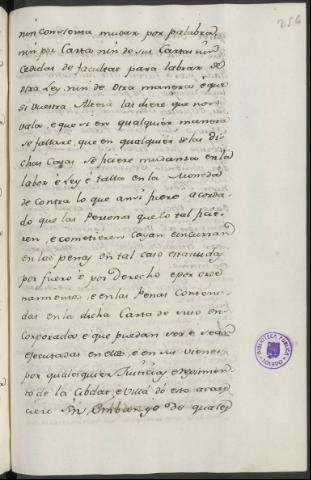 256
nin Consienta mudar por palabra,
nin por Carta nin de sus Cartas nin
Cedulas de facultad para labrar de
otra Ley, nin de otra manera, é que
si Vuestra Alteza las diere que non
vala, e que si en qualquier manera
se fallare, que en qualquier de las di-
chas Casas se ficiere mudanza en la
labor é Ley é talla en la Moneda
de contra lo que ansi fuere acorda-
do que las Personas que lo tal ficie-
ren, e cometieren cayan é incurran
en las penas en tal caso estatuidas
por fuero é por Derecho e por orde-
namientos, e en las Penas Conteni-
das en la dicha Carta de suso en-
corporada, e que puedan ser e sean
ejecutadas en ellos, e en sus vienes
por qualesquier Justicias e regimien-
to de la Cibdad, e Villa dó esto acaes-
ciere Sin Embargo de quales
BIBLIOTECA PUBLICA
TOLEDO